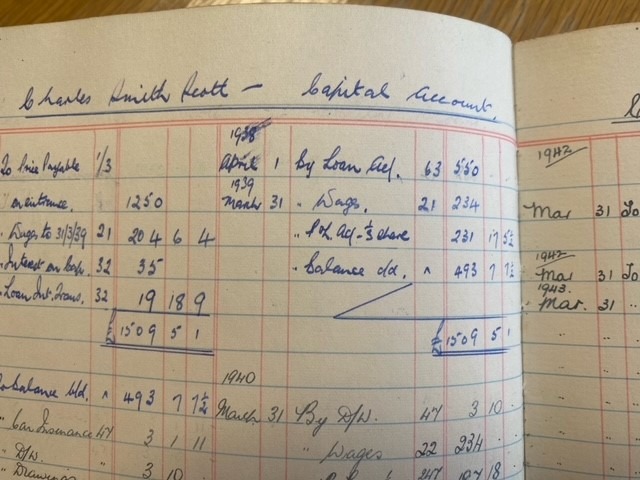 Charles Smith Scott — Capital Account.
1938
To Price Payable 1/3 April 1 By Loan A/c. 63 550
on entrance. 1250 1939 March 31 " Wages. 21 234
" Wages to 31/3/39 21 204 6 4 " P.L. A/c - 1/3 share 231 17 5½
" Interest on Cap. 32 35 " balance c/d. ^ 493 7 7½
" Loan Int. Trans. 32 19 18 9
£1509 5 1 £1509 5 1
1940
To balance b/d. ^ 493 7 7½ March 31 By D/W. 47 3 10
" Car Insurance 47 3 1 11 " Wages 22 234
" D/W. 3 10
" Drawings 247 18
1942
Mar 31 To
1942
Mar 31 To
1943.
Mar. 31